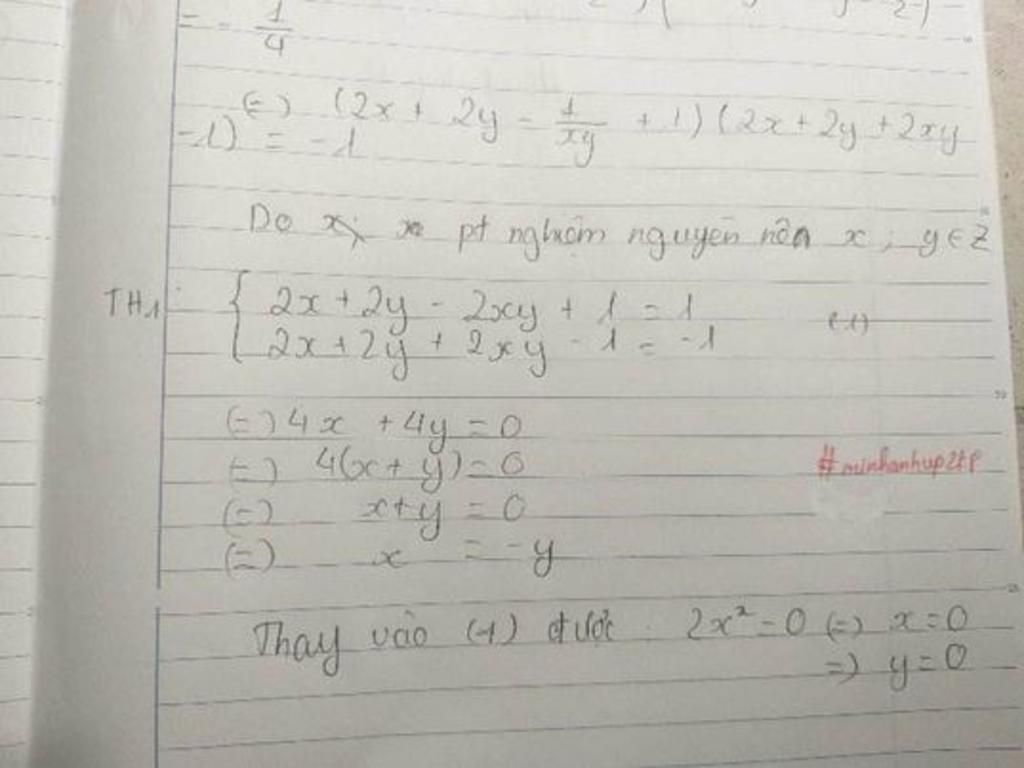 = - 1/4
(=) (2x + 2y - 1/xy + 1) (2x + 2y + 2xy
-1) = -1
Do x; pt nghiệm nguyên nên x; y ∈ Z
TH1 { 2x + 2y - 2xy + 1 = 1
2x + 2y + 2xy - 1 = -1 (1)
(=) 4x + 4y = 0
(=) 4(x + y) = 0
#minhanhvp2tp
(=) x + y = 0
(=) x = -y
Thay vào (1) được 2x² = 0 (=) x = 0
=) y = 0